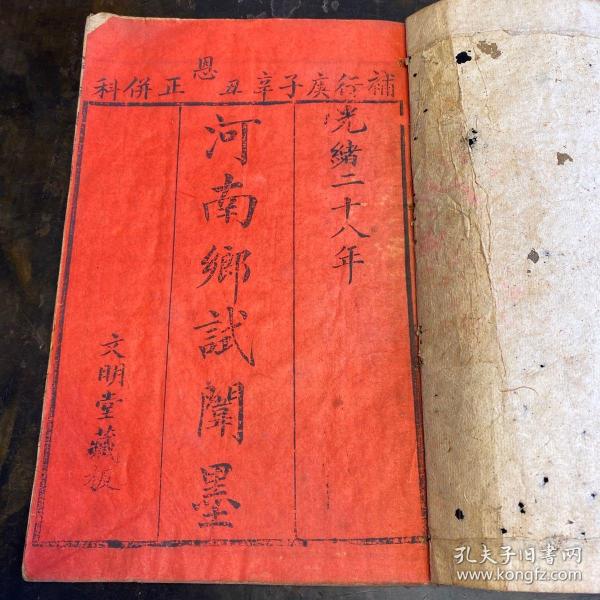 補行庚子辛丑恩正併科
光緒二十八年
河南鄉試闈墨
文明堂藏板
孔夫子旧书网
www.kongfz.com